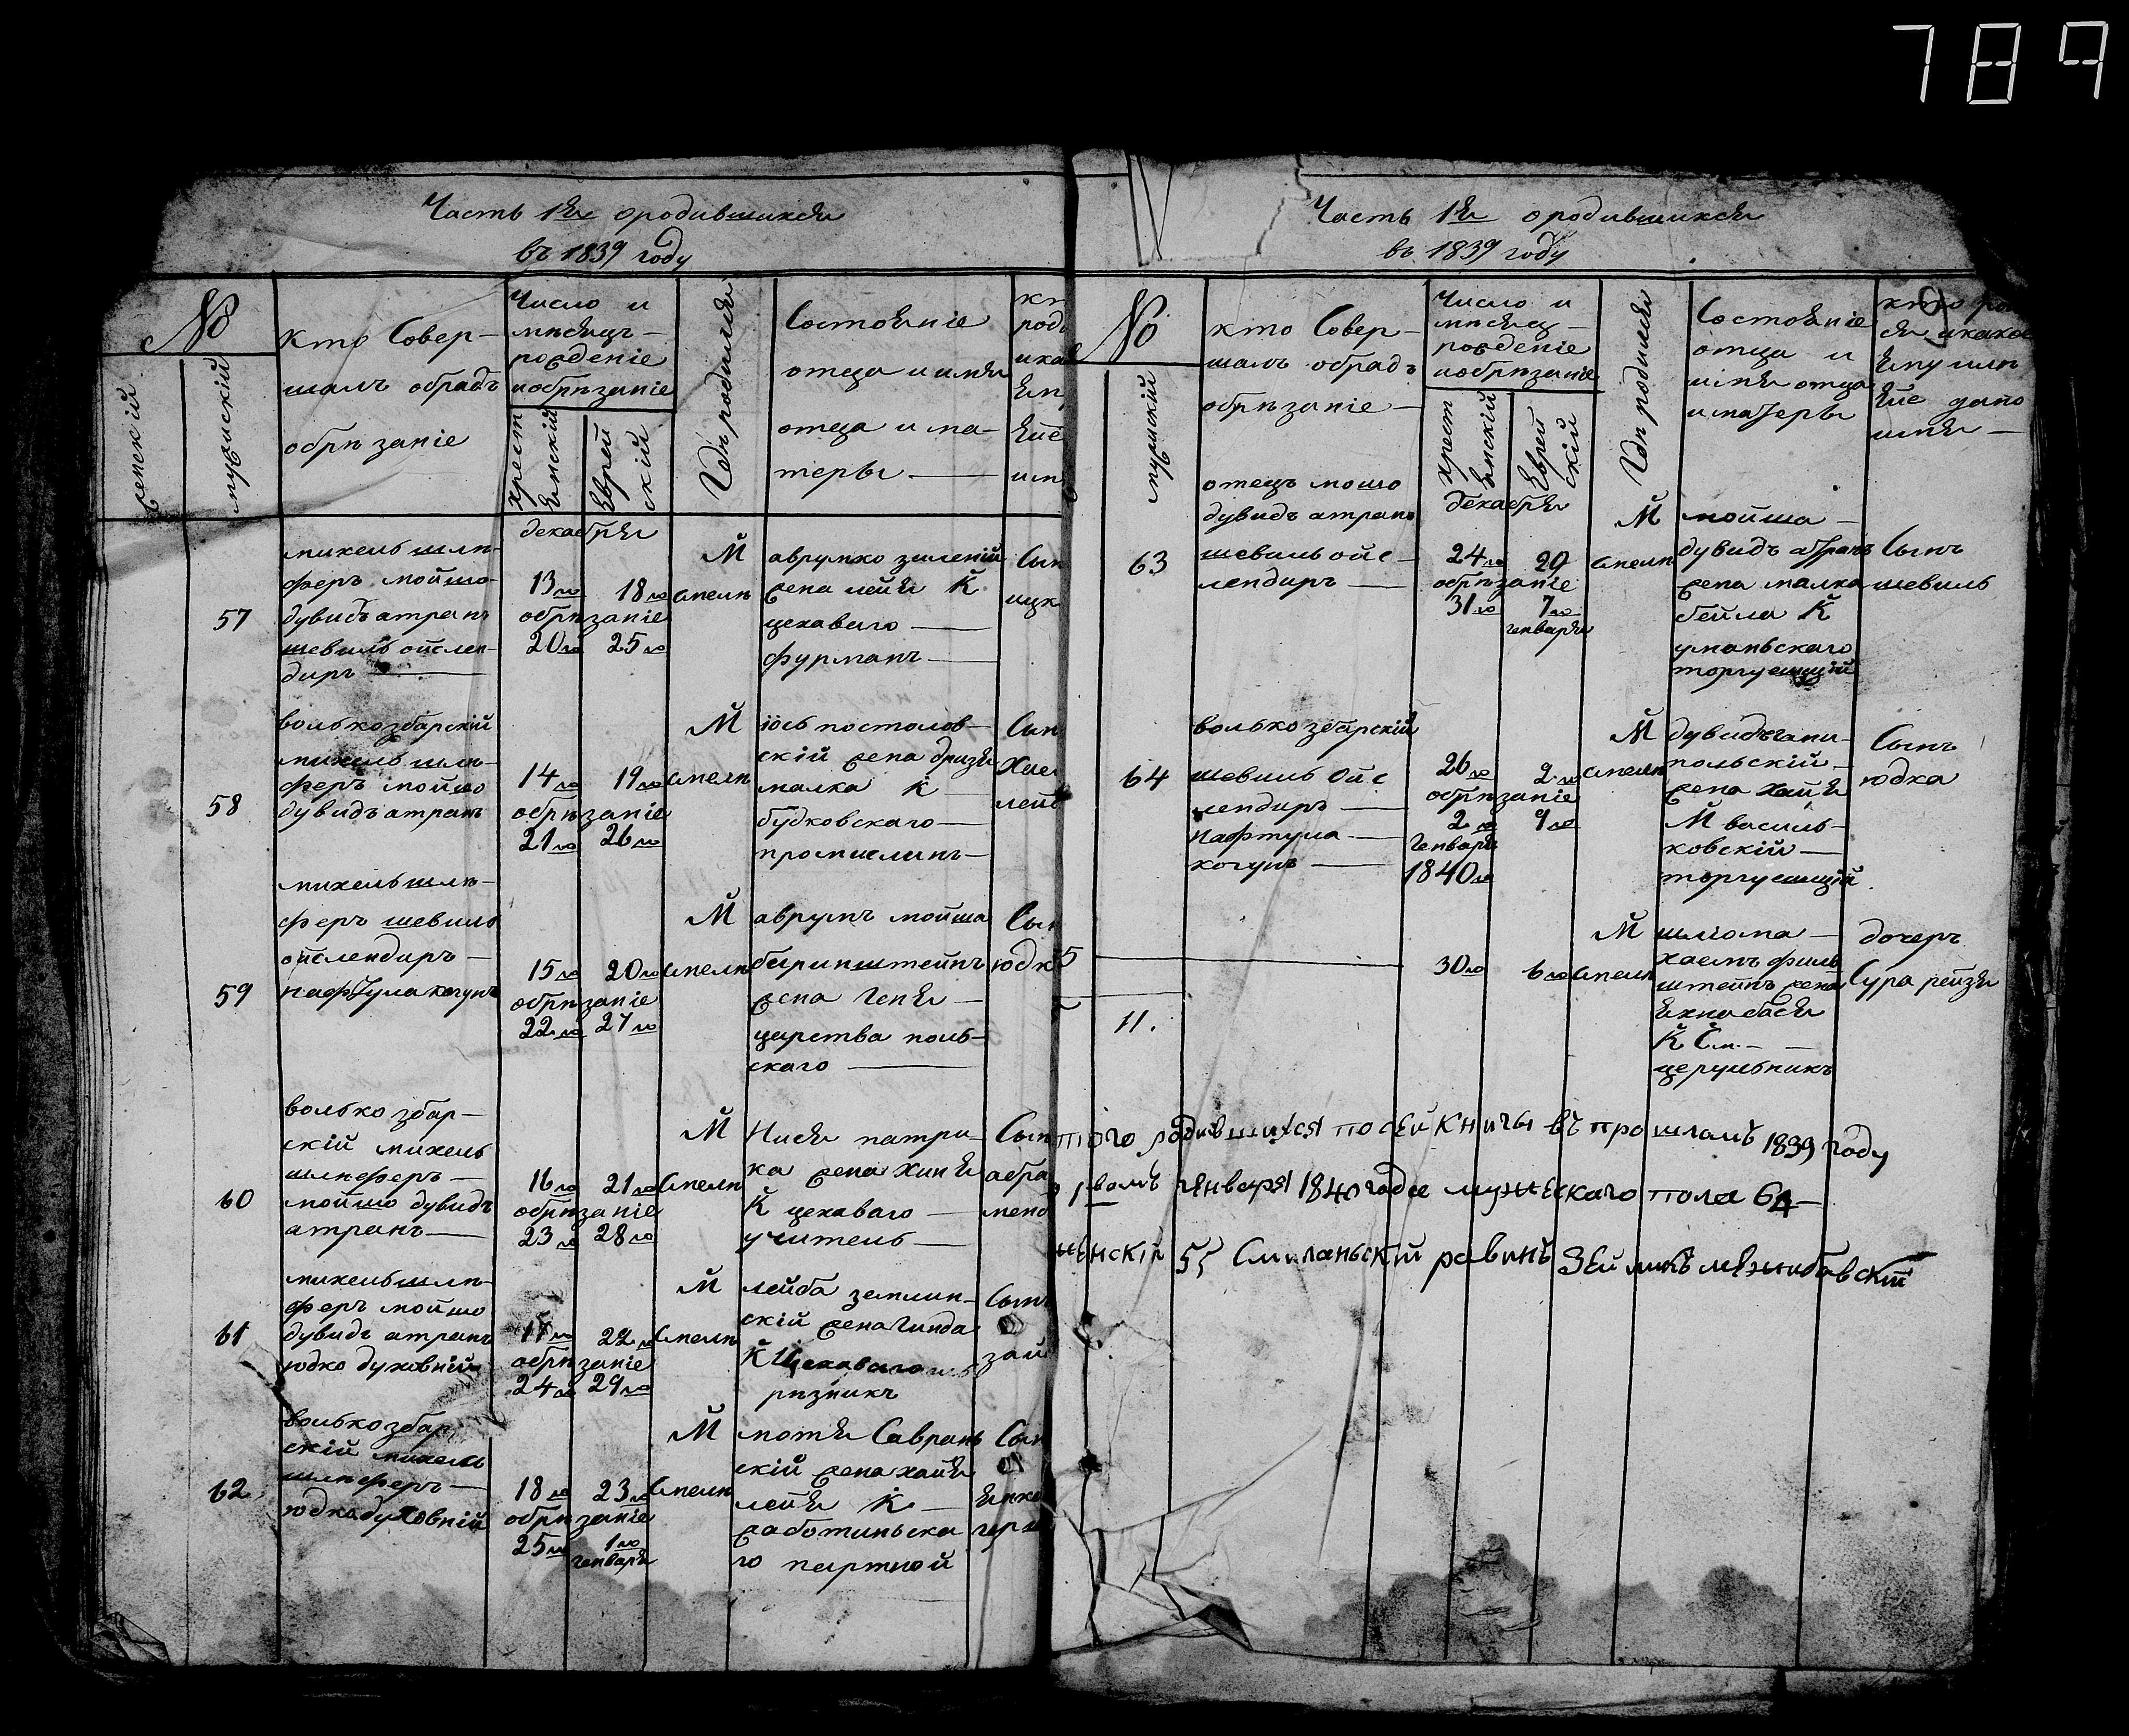 789
Часть 1я ородившихся
въ 1839 году
№
женскій
мужскій
кто Совер-
шалъ обрадъ
обрѣзаніе
Число и
мѣсяцъ
рожденіе
иобрѣзаніе
христ
Еврей
скій
Гдѣ родился
Состояніе
отца и имя
отца и ма-
теры
декабря
57
михель шлѣ-
феръ мойшо
дувидъ атранъ
шевиль ойслен-
диръ
13го 18го
обрѣзаніе
20го 25го
М
смелѣ
аврумко зиленій
жена лейя К
цехаваго
фурманъ
Сын
ицк
58
волько збарскій
михель шлѣ-
феръ мойшо
дувидъ атранъ
14го 19го
обрѣзаніе
21го 26го
М
смелѣ
іось постолов-
скій жена дризя
малка К
будковскаго
промислинъ
Сын
Хае
лейб
59
михель шлѣ-
феръ шевиль
ойслендиръ
нафтула когунъ
15го 20го
обрѣзаніе
22го 27го
М
смелѣ
аврумъ мойша
беринштейнъ
жена геня
царства поль-
скаго
Сын
юдк
60
волько збар-
скій михель
шлѣферъ
мойшо дувидъ
атранъ
16го 21го
обрѣзаніе
23го 28го
М
смелѣ
Нися патри-
ка жена хиня
К цехаваго
учитель
Сын
абра
менд
61
михель шлѣ-
феръ мойшо
дувидъ атранъ
юдко духовній
17го 22го
обрѣзаніе
24го 29го
М
смелѣ
лейба землин-
скій жена гинда
К Цехаваго
рѣзникъ
Сынъ
зай
62
волько збар
скій михель
шлѣферъ
юдко духовній
18го 23го
обрѣзаніе
25го 1го
генваря
М
смелѣ
мотя Савранъ
скій жена хайя
лейя К
жаботиньска
го партной
Сын
Часть 1я ородившихся
въ 1839 году
№
мужскій
кто Совер-
шалъ обрадъ
обрѣзаніе
Число и
мѣсяц
рожденіе
иобрѣзаніе
христ
Еврей
скій
Гдѣ родился
Состояніе
отца и
имя отца
иматеры
63
отецъ мошо
дувидъ атранъ
шевиль ойс-
лендиръ
декабря
24го 29
обрѣзаніе
31го 7го
генваря
М
смелѣ
мойша
дувидъ атранъ
жена малка
бейла К
уманьскаго
торгующій
Сынъ
шевиль
64
волько збарскій
шевиль Ойс
лендиръ
нафтула
когунъ
26го 2го
обрѣзаніе
2го 9го
генваря
1840го
М
смелѣ
дувидъ гани-
польскій
жена хайя
М василь-
ковскій
торгующій
Сынъ
юдка
5
30го 6го
М
смелѣ
шлёма
хаемъ филь
штейнъ жена
К См.
церульникъ
дочеръ
Сура рейзя
11.
того родившихся посей книги въ прошломъ 1839 году
1 генваря 1840 года мужескаго пола 64
женскій 55 Смиляньскій равинъ Зейликъ межибовскій